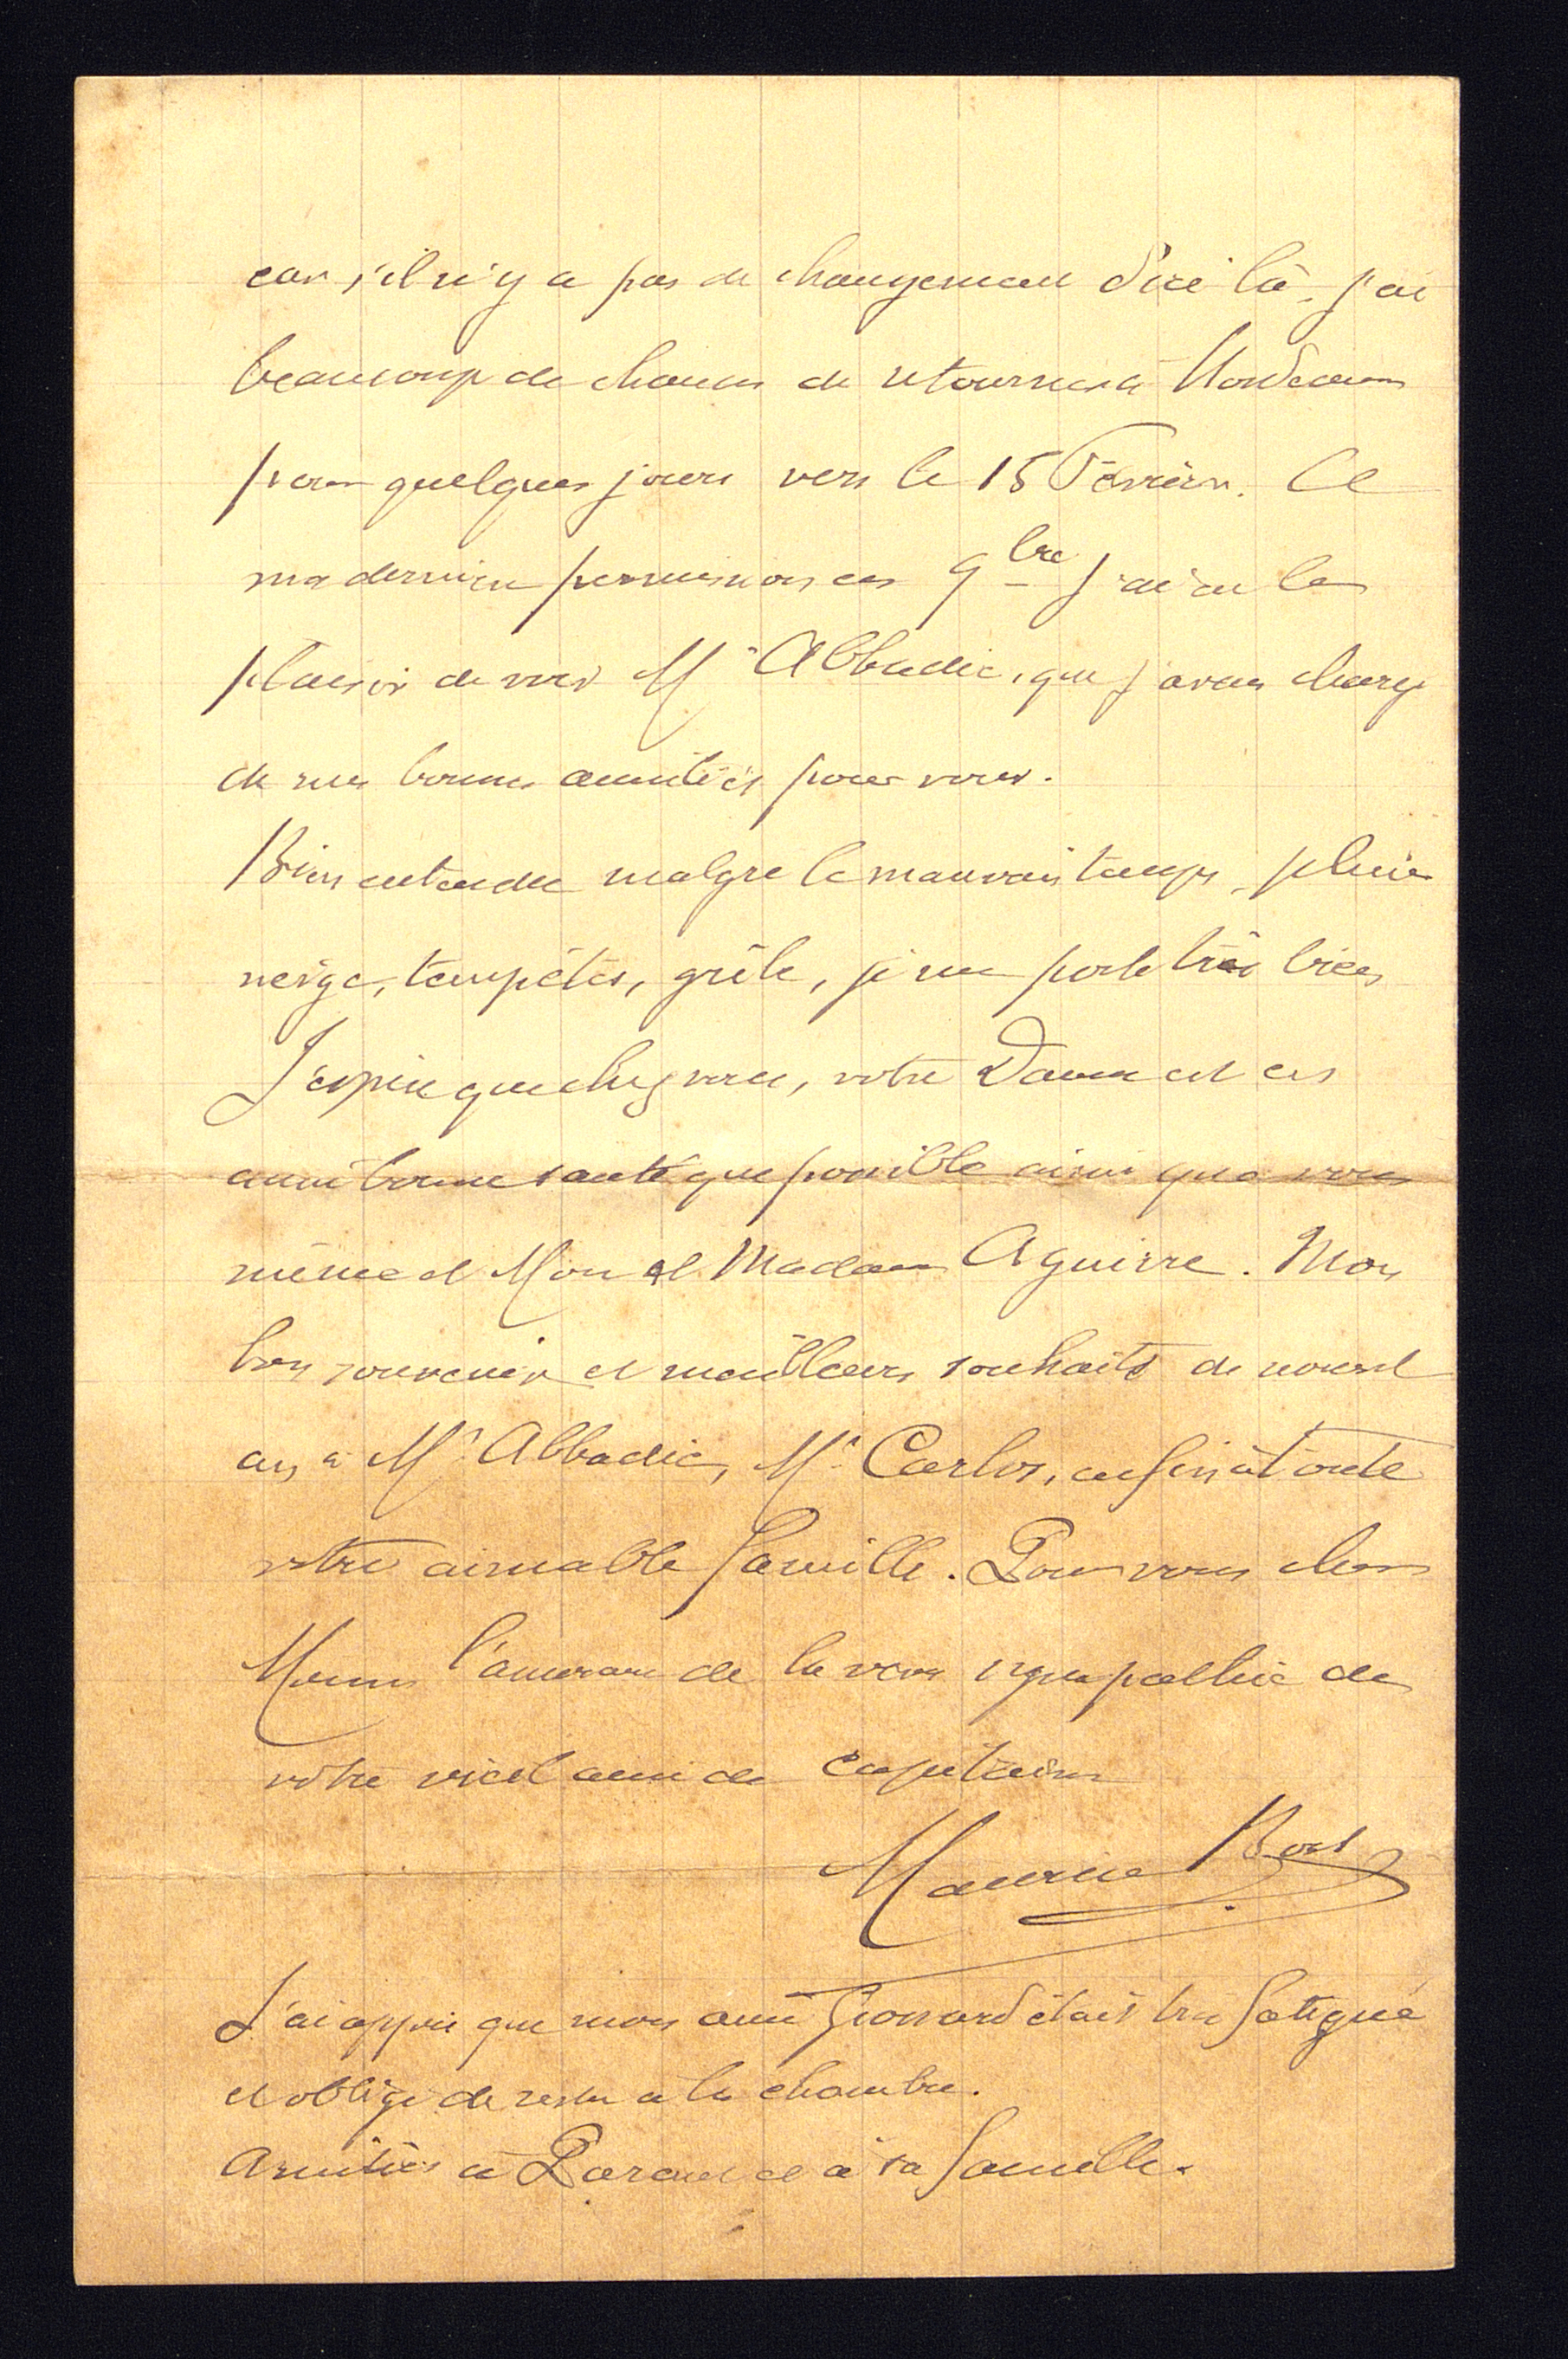 car s'il n'y a pas de changement d'ici là, j'ai
beaucoup de chances de retourner à Bordeaux
pour quelques jours vers le 15 Février. A
ma dernière permission en 9bre j'ai eu le
plaisir de voir Mr Abbadie, que j'avais chargé
de mes bonnes amitiés pour vous.
Bien entendu malgré le mauvais temps, pluie
neige, tempêtes, grêle, je me porte très bien
J'espère que chez vous, votre Dame est en
aussi bonne santé que possible ainsi que vous
même et Mon et Madame Aguirre. Mon
bon souvenir et meilleurs souhaits de nouvel
an à Mr Abbadie, Mr Carlos, enfin à toute
votre aimable famille. Pour vous cher
Monsr l'assurance de la vive sympathie de
votre vieil ami de capitaine
Maurice
J'ai appris que mon ami était très fatigué
et obligé de rester à la chambre.
Amitiés à et à sa famille.